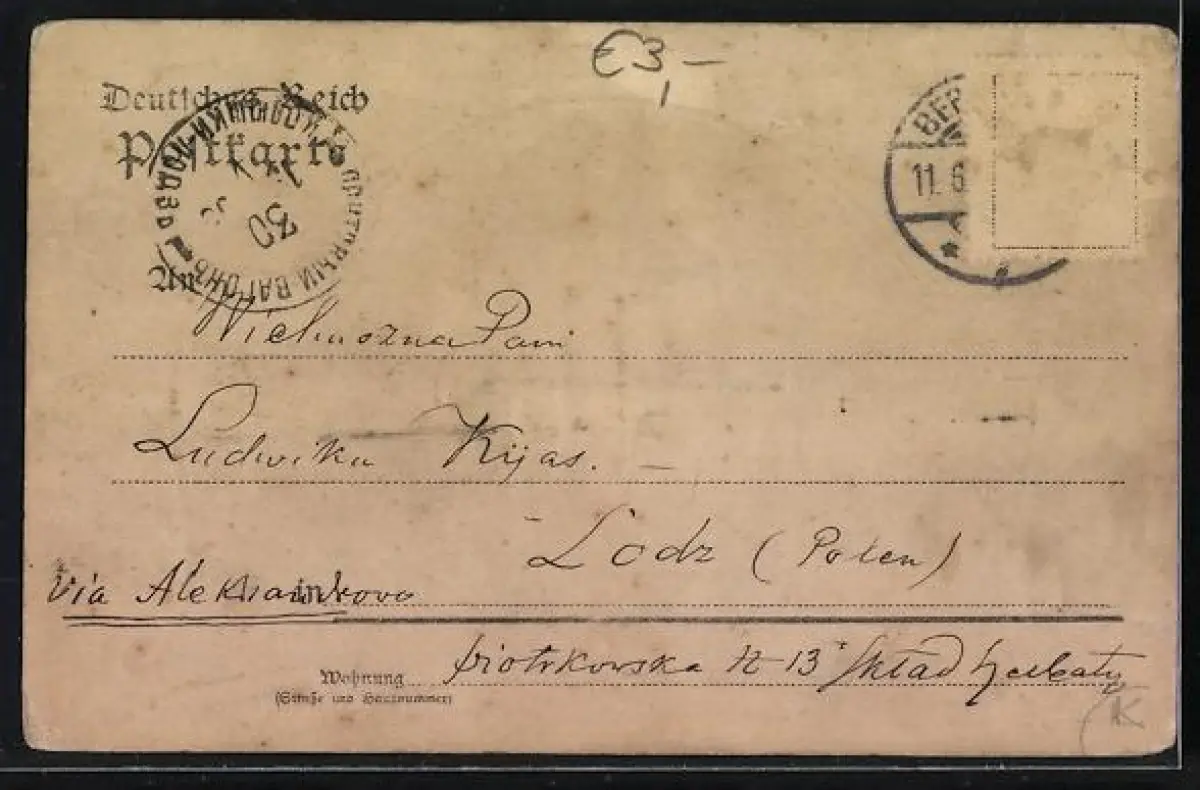 €3,–
Deutsches Reich
Postkarte
BER
11.6
30
ПОЧТОВЫЙ ВАГОНЪ
An
Wielmozna Pani
Ludwika Kijas.
Lodz (Polen)
via Aleksandrovo
piotrkowska N 13 Skład herbaty
Wohnung
(Straße und Hausnummer)
K